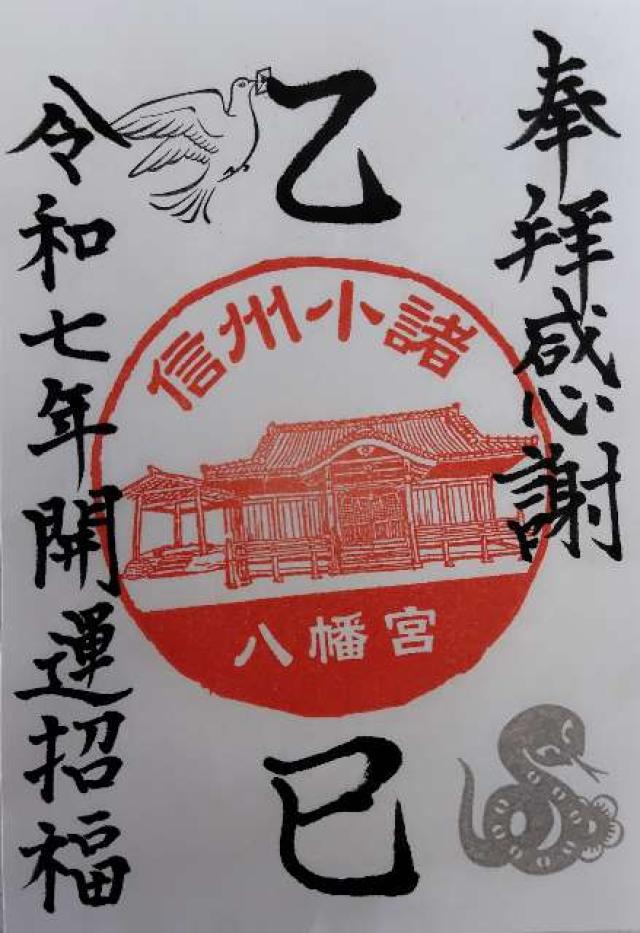 奉拝感謝
乙
巳
信州小諸
八幡宮
令和七年開運招福